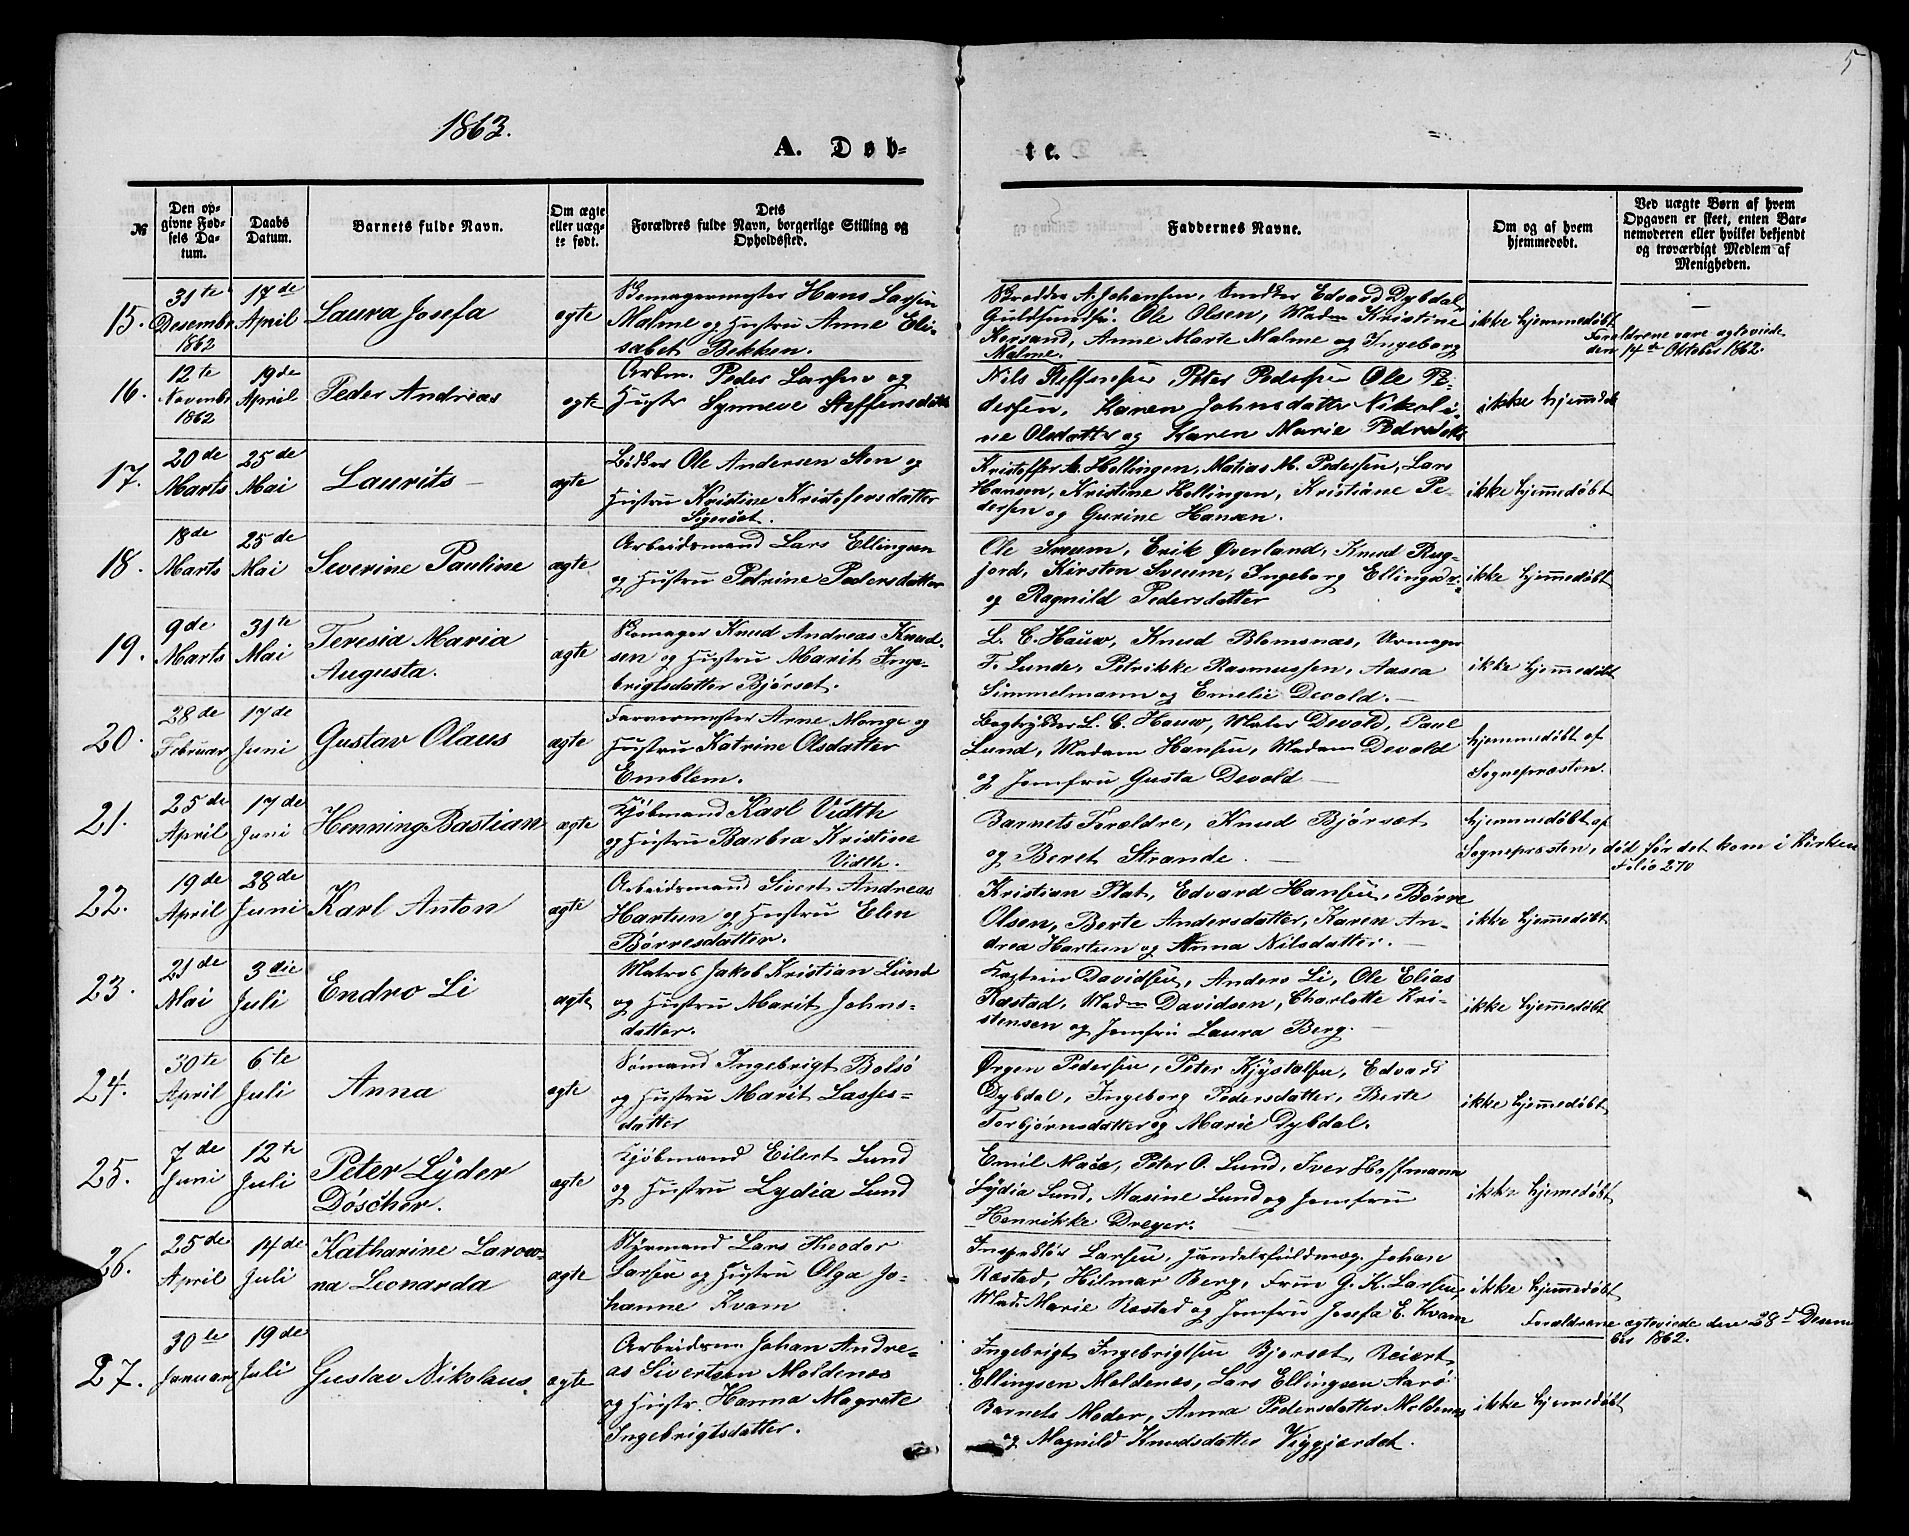 5
1863.
A. Døb-
te.
№
Den op-
givne Fød-
sels Da-
tum.
Daabs
Datum.
Barnets fulde Navn.
Om ægte
eller uæg-
te født.
Dets
Forældres fulde Navn, borgerlige Stilling og
Opholdssted.
Faddernes Navne.
Om og af hvem
hjemmedøbt.
Ved uægte Børn af hvem
Opgaven er skeet, enten Bar-
nemoderen eller hvilket bekjendt
og troværdigt Medlem af
Menigheden.
15.
31te
Desembr
1862
17de
April
Laura Josefa
ægte
Skomagermester Hans Larsen
Malme og Hustru Anne Eli-
sabet Bekken.
Skrædder A. Johansen, Snedker Edvard Dybdal
Guldsmedsv. Ole Olsen, Madm Kristine
Korsand, Anne Marte Malme og Ingeborg
Malme.
ikke hjemmedøbt
—
Forældrene vare ægteviede
den 14de Oktober 1862.
16.
12te
Novembr
1862
19de
April
Peder Andreas
ægte
Arbm. Peder Larsen og
Hustr Synneve Steffensdatter
Nils Steffensen Peter Pedersen Ole Pe-
dersen, Karen Johnsdatter Nikoli-
ne Olsdatter og Karen Marie Pedersdatter
ikke hjemdøbt
17.
20de
Marts
25de
Mai
Laurits
ægte
Bødker Ole Andersen Sten og
Hustru Kristine Kristofersdatter
Sigerset.
Kristoffer A. Hellingen, Matias M. Pedersen, Lars
Hansen, Kristine Hellingen, Kristiane Pe-
dersen og Gurine Hansen.
ikke hjemmedøbt
18.
18de
Marts
25de
Mai
Severine Pauline
ægte
Arbeidsmand Lars Ellingsen
og Hustru Petrine Pedersdatter
Ole Sveum, Erik Øverland, Knud Rug-
jord, Kirsten Sveum, Ingeborg Ellingsdr.
og Ragnild Pedersdatter
ikke hjemmedøbt
19.
9de
Marts
31te
Mai
Teresia Maria
Augusta.
ægte
Skomager Knud Andreas Knud-
sen og Hustru Marit Inge-
brigtsdatter Bjørset.
L. C. Hauw, Knud Blomsnas, Urmager
F. Lunde, Petrikke Rasmussen, Aasea
Simmelmann og Emelie Devold.
ikke hjemmedøbt
20.
28de
Februar
17de
Juni
Gustav Olaus
ægte
Farvermester Arne Monge og
Hustru Katrine Olsdatter
Emblem.
Bogtrykker L. C. Hauw, Maler Devold, Paul
Lund, Madam Hansen, Madam Devold
og Jomfru Gusta Devold
hjemmedøbt af
Sognepræsten.
21.
25de
April
17de
Juni
Henning Bastian
ægte
Kjøbmand Karl Vidth
og Hustru Barbra Kristine
Vidth.
Barnets Forældre, Knud Bjørset
og Beret Strande.
hjemmedøbt af
Sognepræsten, død før det kom i Kirken
Folio 270
22.
19de
April
28de
Juni
Karl Anton
ægte
Arbeidsmand Sivert Andreas
Hartun og Hustru Elen
Børresdatter.
Kristian Plat, Edvard Hansen, Børre
Olsen, Berte Andersdatter, Karen An-
drea Hartun og Anna Nilsdatter.
ikke hjemmedøbt
23.
21de
Mai
3die
Juli
Endro Li
ægte
Matros Jakob Kristian Lund
og Hustru Marit Johns-
datter.
Kaptein Davidsen, Anders Li, Ole Elias
Ræstad, Madm Davidsen, Charlotte Kri-
stensen og Jomfru Laura Berg.
ikke hjemmedøbt
24.
30te
April
6te
Juli
Anna
ægte
Sømand Ingebrigt Bolsø
og Hustru Marit Lasses-
datter
Ørgen Pedersen, Peter Kjystalsen, Edvard
Dybdal, Ingeborg Pedersdatter, Berte
Torbjørnsdatter og Marie Dybdal.
ikke hjemmedøbt
25.
7de
Juni
12te
Juli
Peter Lyder
Døscher.
ægte
Kjøbmand Eilert Lund
og Hustru Lydia Lund
Emil Mace, Peter O. Lund, Iver Hoffmann
Lydia Lund, Masine Lund og Jomfru
Henrikke Dreyer.
ikke hjemedøbt
26.
25de
April
14de
Juli
Katharine Larow-
na Leonarda
ægte
Styrmand Lars Theodor
Larsen og Hustru Olga Jo-
hanne Kvam
Inspektør Larsen, Handelsfuldmæg. Johan
Ræstad, Hilmar Berg, Fru G. K. Larsen,
Mad. Marie Ræstad og Jomfru Josefa E. Kvam
ikke hjemmedøbt
27.
30te
Januar
19de
Juli
Gustav Nikolaus.
ægte
Arbeidsm. Johan Andre-
as Sivertsen Moldenes
og Hustr. Hanna Magrete
Ingebrigtsdatter.
Ingebrigt Ingebrigtsen Bjørset, Reiert
Ellingsen Moldenes, Lars Ellingsen Aarø
Barnets Moder, Anna Pedersdatter Moldenes
og Magnild Knudsdatter Viggjerdet.
ikke hjemedøbt
Forældrene ægteviede den 28de Desem
ber 1862.